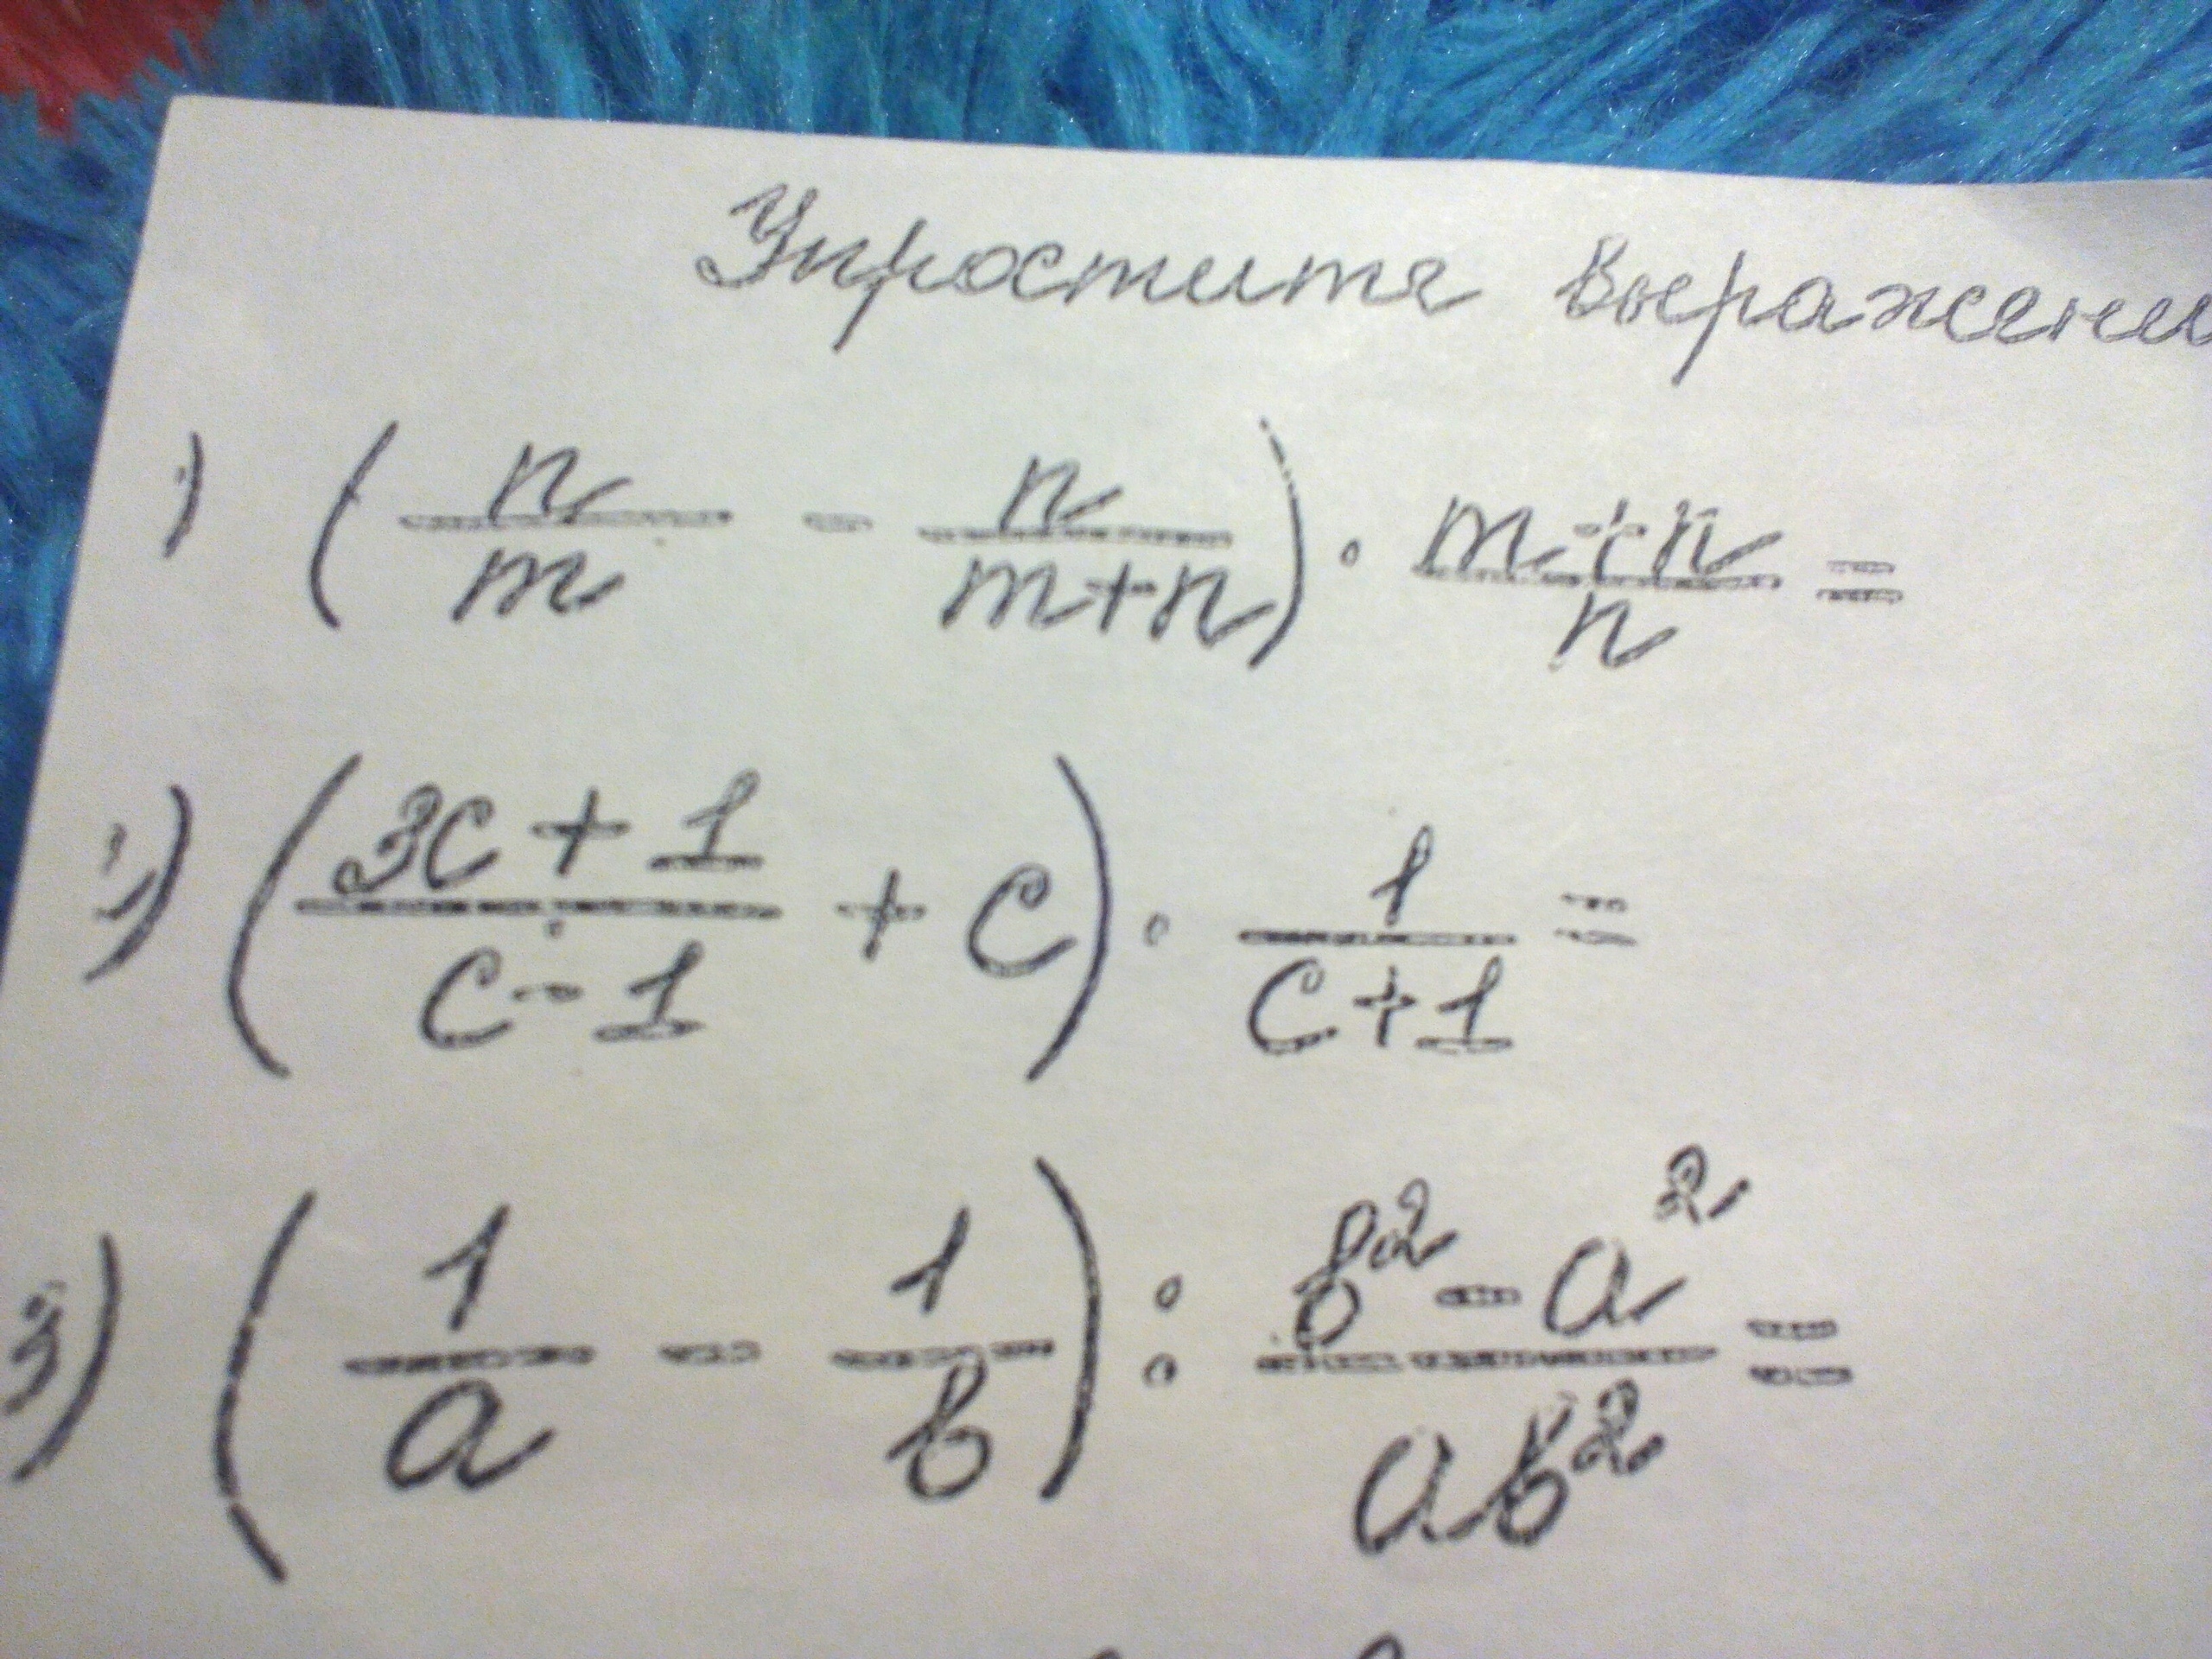 Упростить выражени
1) (n/m - n/(m+n)) · (m+n)/n =
2) ((3c+1)/(c-1) + c) · 1/(c+1) =
3) (1/a - 1/b) : (b²-a²)/(ab²) =